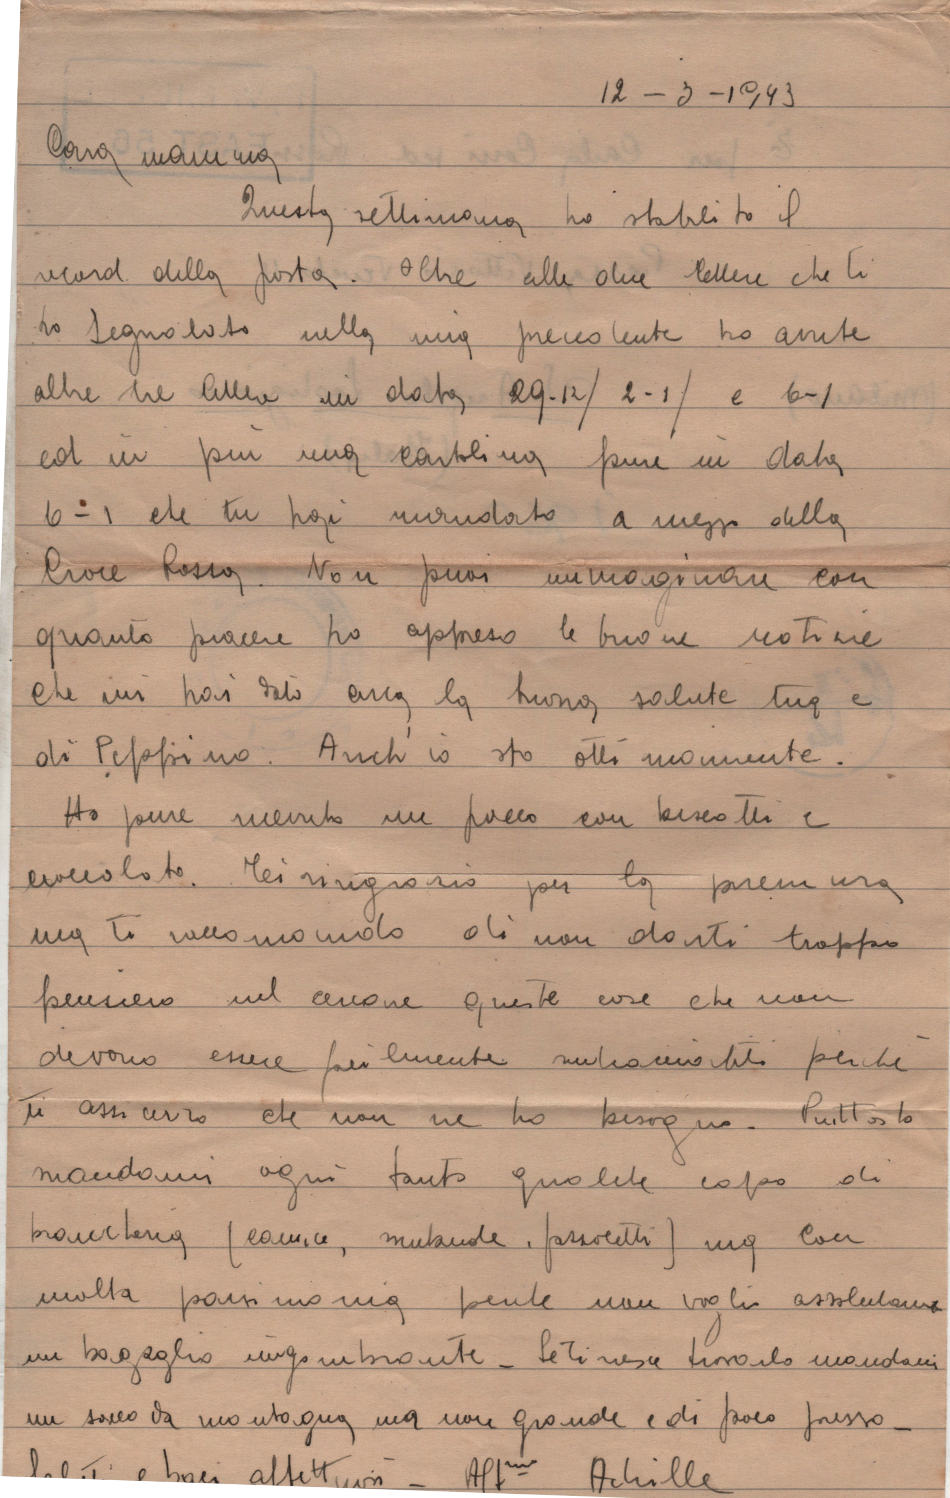 12 - 3 - 1943
Cara mamma
Questa settimana ho stabilito il
record della posta. Oltre alle due lettere che ti
ho segnalato nella mia precedente ho avute
altre tre lettere in data 29-12/ 2-1/ e 6-1
ed in più una cartolina pure in data
6-1 che tu hai mandato a mezzo della
Croce Rossa. Non puoi immaginare con
quanto piacere ho appreso le buone notizie
che mi hai dato circa la buona salute tua e
di Peppino. Anch'io sto ottimamente.
Ho pure ricevuto un pacco con biscotti e
cioccolato. Ti ringrazio per la premura
ma ti raccomando di non darti troppo
pensiero nel cercare queste cose che non
devono essere facilmente rintracciabili perchè
ti assicuro che non ne ho bisogno. Piuttosto
mandami ogni tanto qualche capo di
biancheria (camice, mutande, fazzoletti) ma con
molta parsimonia perchè non voglio assolutamente
un bagaglio ingombrante - Se ti riesce trovarlo mandami
un sacco da montagna ma non grande e di poco prezzo -
Saluti e baci affettuosi - Aff.mo Achille